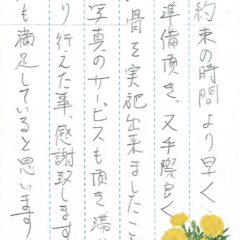 約束の時間より早く
準備頂き、又手際良く
骨を実施出来ましたこと
写真のサービスも頂き滞
り行えた事、感謝致します
も満足していると思います